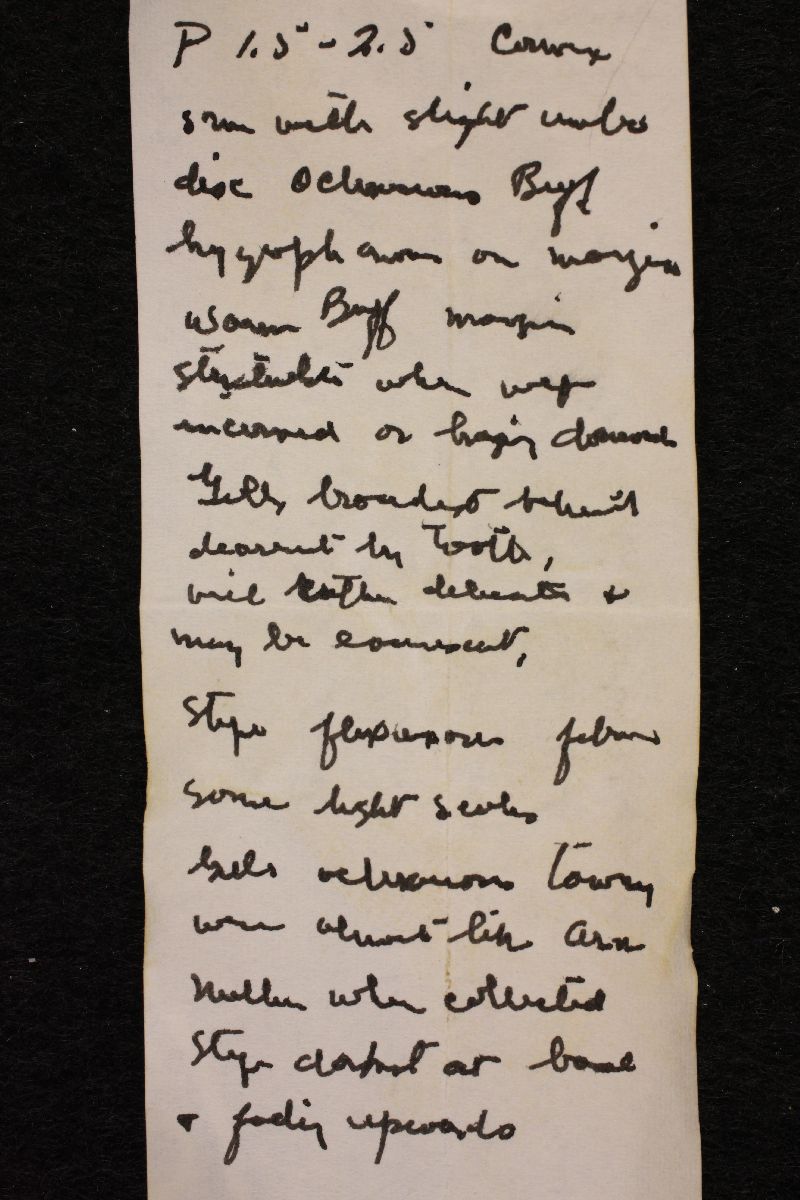 P 1.5 - 2.5 Convex
som with slight umbo
disc Ochraceous Buff
hygrophanous on margin
Warm Buff margin
striatulate when wet
incurved or hanging downwards
Gills broadest behind
decurrent by tooth,
veil rather delicate &
may be evanescent,
Stipe flexuous
some light scales
Gills ochraceous tawny
were almost like
when collected
Stipe darkest at base
& fading upwards